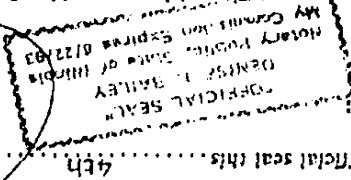 official seal this 4th
"OFFICIAL SEAL"
DENISE L. BAILEY
Notary Public, State of Illinois
My Commission Expires 8/22/93